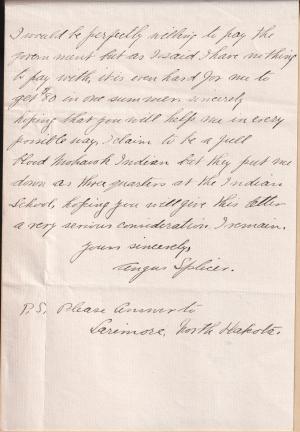 I would be perfectly willing to pay the
government but as I said I have nothing
to pay with, it is even hard for me to
get $50 in one summer, sincerely
hoping that you will help me in every
possible way, I claim to be a full
blood Mohawk Indian but they put me
down as three quarters at the Indian
School, hoping you will give this letter
a very serious consideration I remain.
Yours sincerely,
Angus Splicer.
P.S. Please answer to
Larimore, North Dakota.